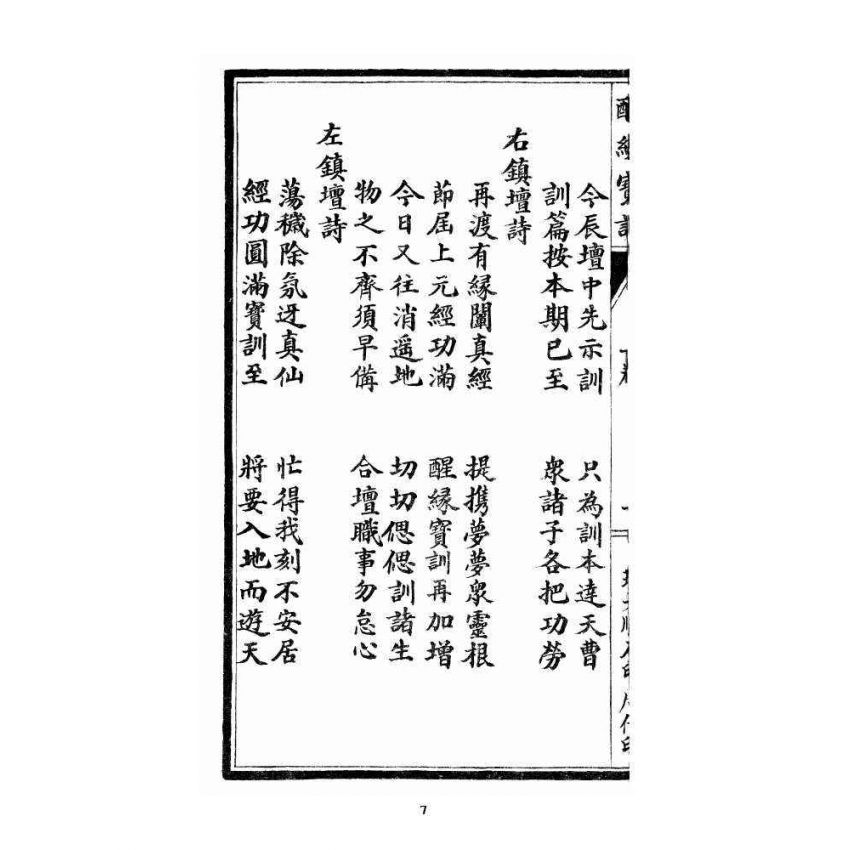 今辰壇中先示訓　只為訓本達天曹
訓篇按本期已至　衆諸子各把功勞
右鎮壇詩
再渡有緣闡真經　提携夢夢衆靈根
節屆上元經功滿　醒緣寶訓再加增
今日又往消遥地　切切偲偲訓諸生
物之不齊須早備　合壇職事勿怠心
左鎮壇詩
蕩穢除氛迓真仙　忙得我刻不安居
經功圓滿寶訓至　將要入地而遊天
7